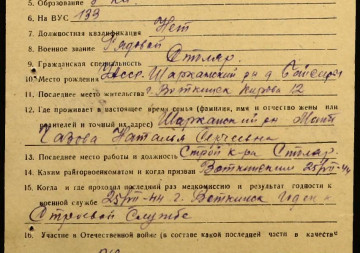 5. Образование 3 кл.
6. На ВУС 133
7. Должностная квалификация Нет
8. Военное звание Рядовой
9. Гражданская специальность Столяр.
10. Место рождения Шарканский рн д.
11. Последнее место жительства г. Воткинск Кирова 12
12. Где проживает в настоящее время семья (фамилия, имя и отчество жены или
родителей и точный их адрес) Шарканский рн
Наталья
13. Последнее место работы и должность Строй к-ра Столяр
14. Каким райгорвоенкоматом и когда призван Воткинским 25/VII-44
15. Когда и где проходил последний раз медкомиссию и результат годности к
военной службе 25/VII-44 г. Воткинск Годен к
Строевой Службе
16. Участие в Отечественной войне (в составе какой последней части в качестве